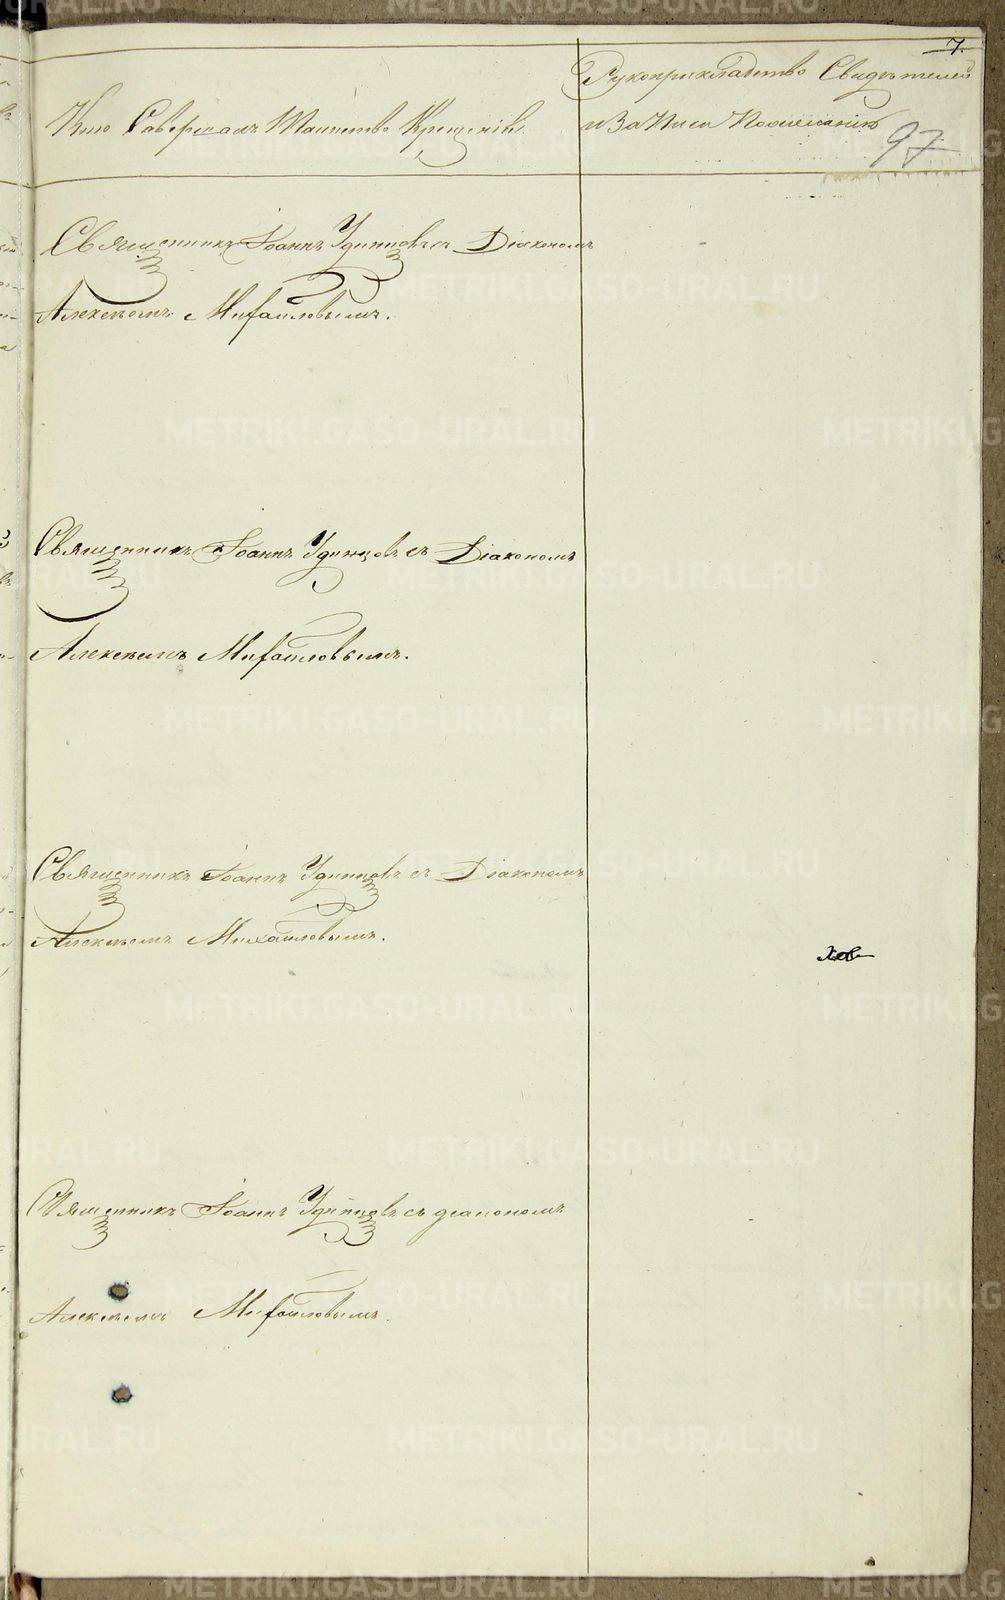 7.
97
Рукоприкладство Свидѣтелей
и Записи По желанію
Кто Совершалъ Таинство Крещенія
Священникъ Іоаннъ Удинцовъ съ Діакономъ
Алексѣемъ Михайловымъ.
Священникъ Іоаннъ Удинцовъ съ Діакономъ
Алексѣемъ Михайловымъ.
Священникъ Іоаннъ Удинцовъ съ Діакономъ
Алексѣемъ Михайловымъ.
Священникъ Іоаннъ Удинцовъ съ діакономъ
Алексѣемъ Михайловымъ.
METRIKI.GASO-URAL.RU